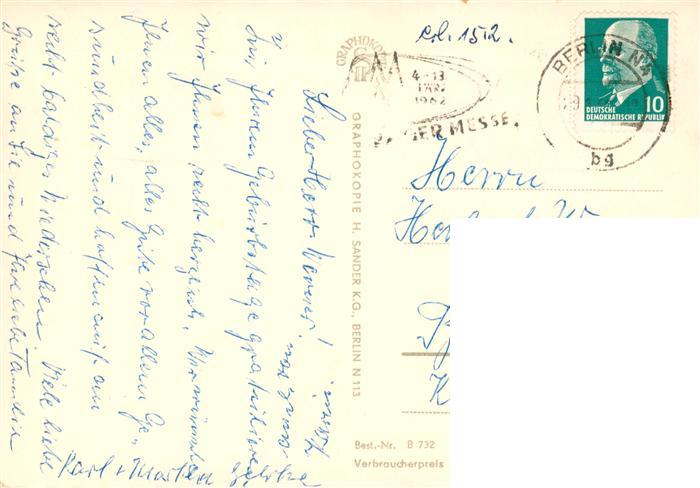 Lieber Herr Werner!
Zu Ihrem Geburtstage gratulieren
wir Ihnen recht herzlich. Wir wünschen
Ihnen alles, alles Gute vor allem Ge-
sundheit und hoffen auf ein
recht baldiges Wiedersehen. Viele liebe
Grüße an Sie und Ihre liebe Familie
Karl + Marta
GRAPHOKOPIE
GRAPHOKOPIE H. SANDER K.G., BERLIN N 113
152.
4-13
MÄRZ
1962
ER MESSE.
BERLIN N4
bg
10
DEUTSCHE
DEMOKRATISCHE REPUBLIK
Herrn
Best.-Nr. B 732
Verbraucherpreis